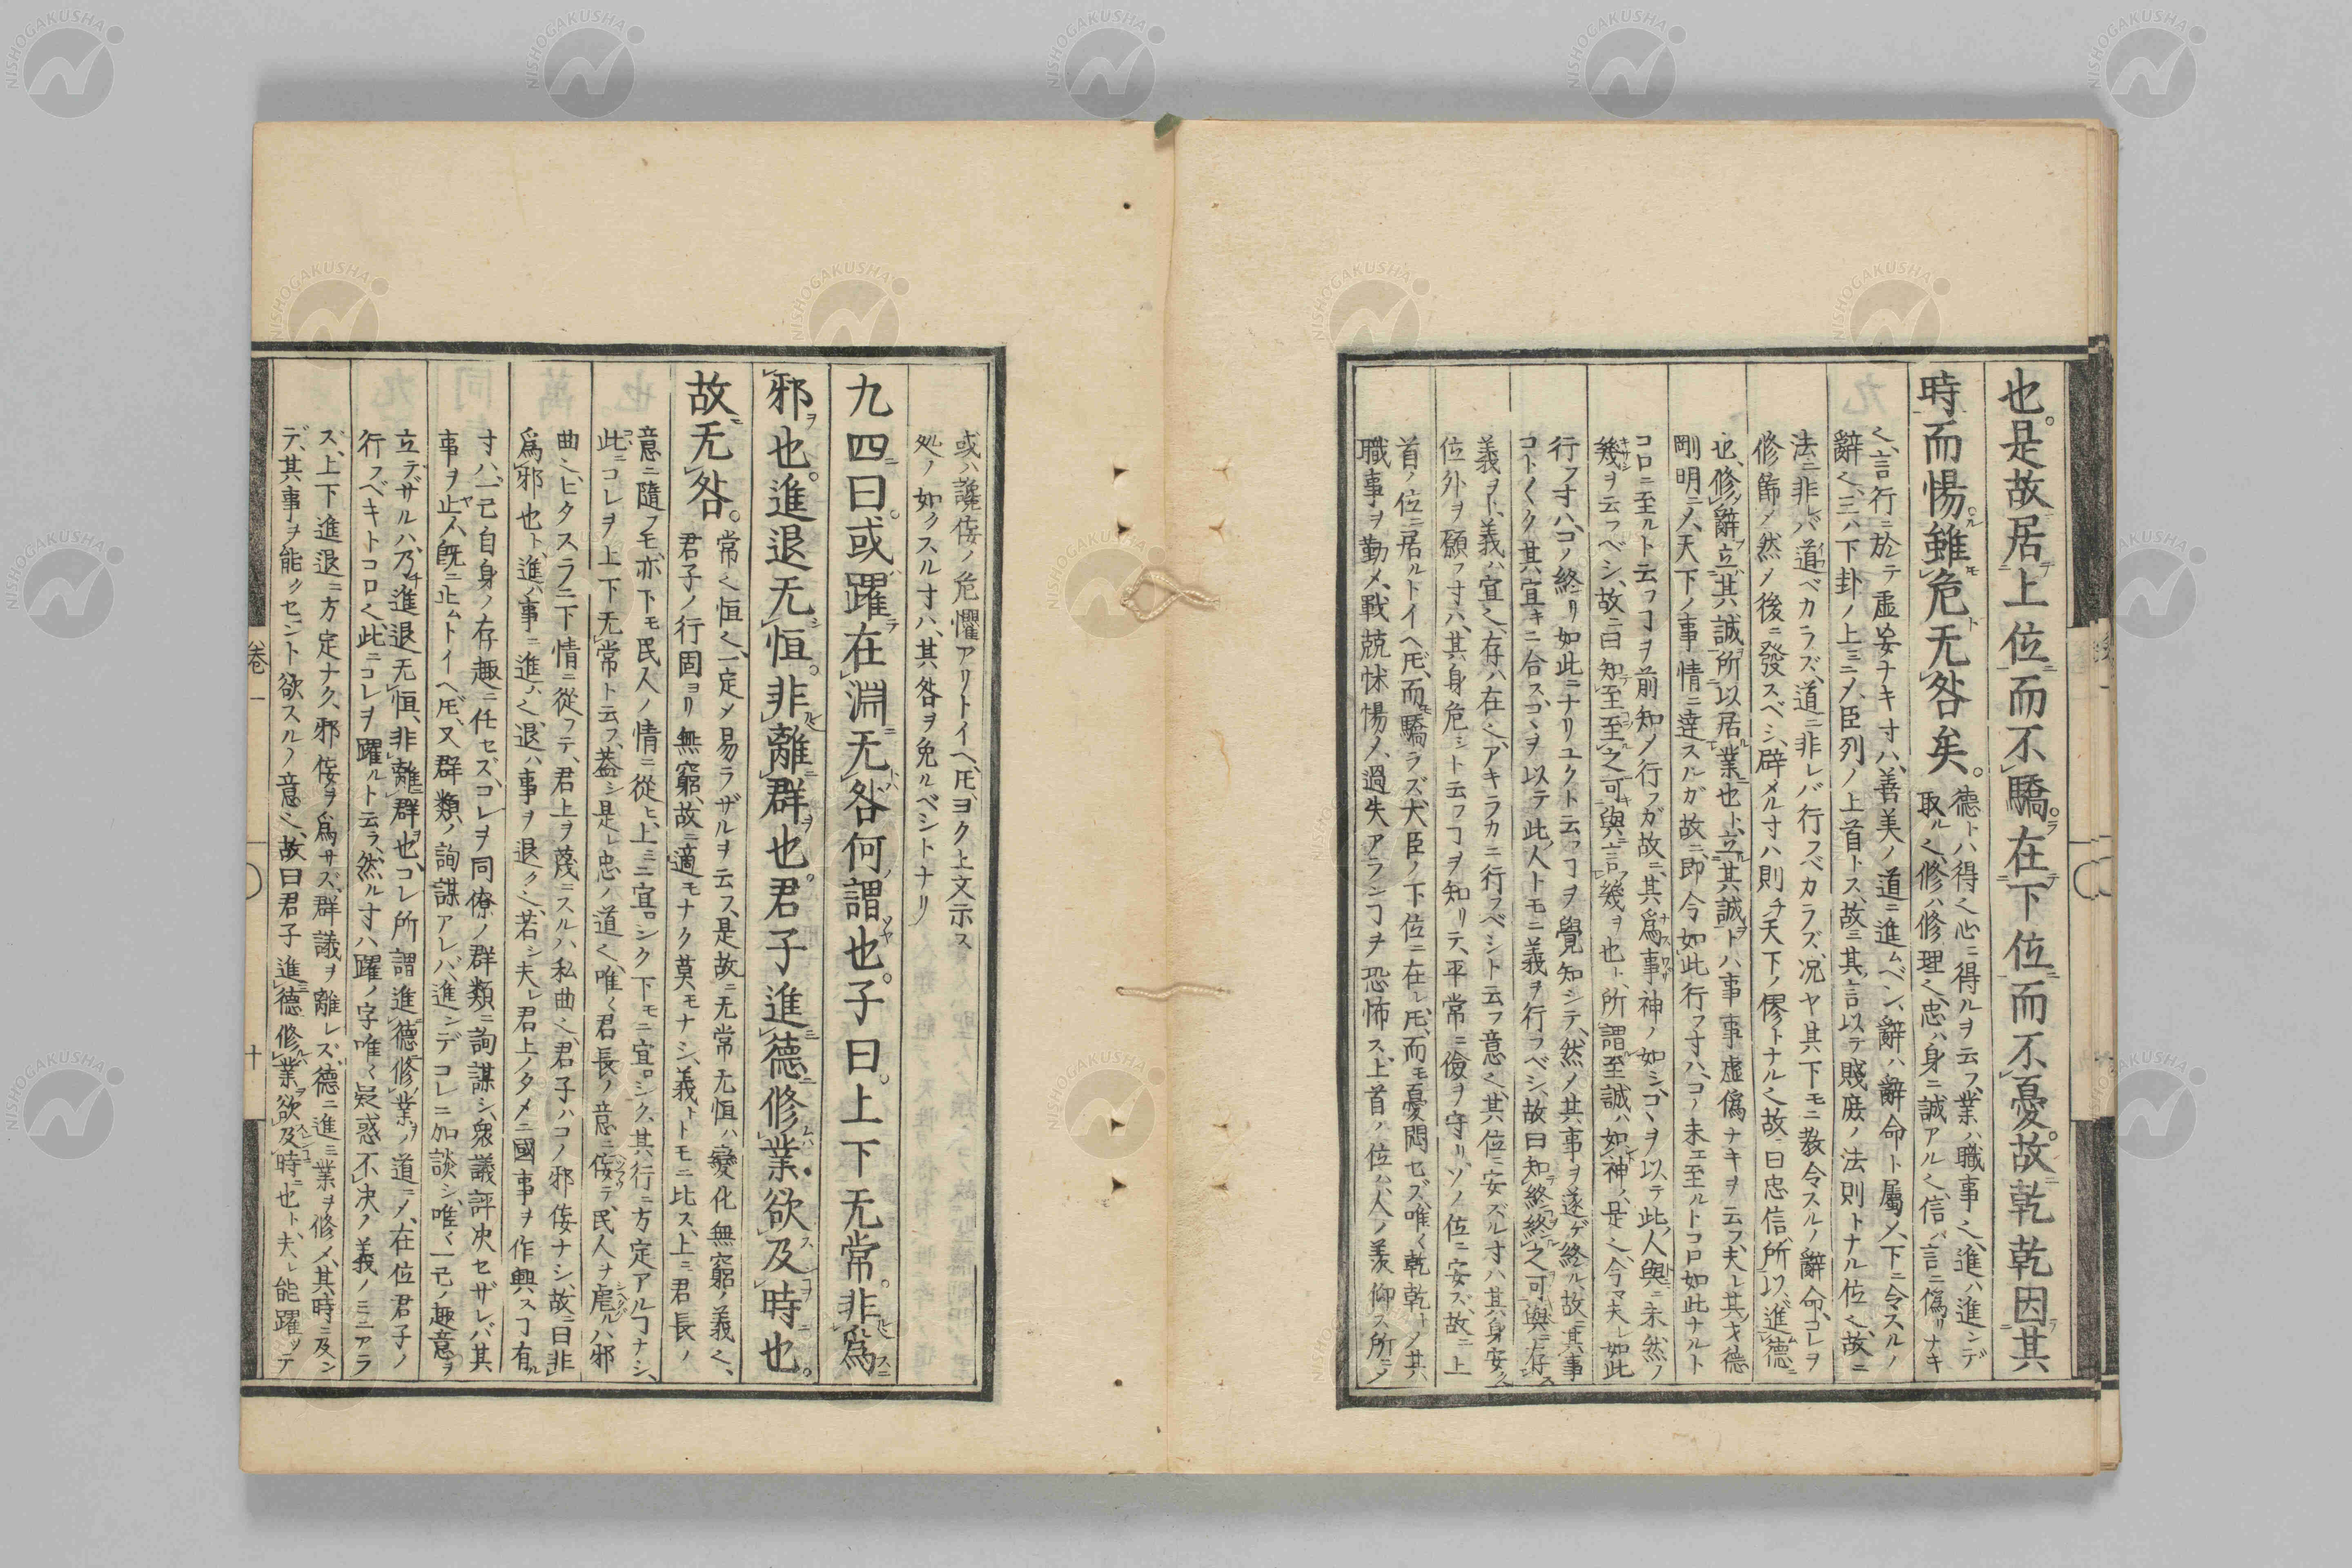 也。是故居上位而不驕。在下位而不憂。故乾乾因其
時而惕。雖危无咎矣。
德トハ得也心ニ得ルヲ云フ、業ハ職事也、進ハ進ンデ
取ル也、修ハ修理也、忠ハ身ニ誠アル也、信ハ言ニ偽リナキ
也、言行ニ於テ虚妄ナキ寸ハ、善美ノ道ニ進ムベシ、辭ハ辭命ト屬メ、下ニ令スルノ
辭也、三ハ下卦ノ上ニメ、臣列ノ上首トス、故ニ其言以テ賤庶ノ法則トナル位也、故ニ
法ニ非レバ道ベカラズ、道ニ非レバ行フベカラズ、况ヤ其下モニ教令スルノ辭命、コレヲ
修飾メ然メ後ニ發スベシ、辟メル寸ハ則チ天下ノ僇トナル也、故曰忠信所以進德
也、修辭立其誠所以居業也ト、立其誠トハ事事虚偽ナキヲ云フ、夫レ其才德
剛明ニメ、天下ノ事情ニ達スルガ故ニ、即今如此行フ寸ハ、コノ未ニ至ルトコロ如此ナルト
コロニ至ルト云フヿヲ前知メ行フガ故ニ、其爲事神ノ如シ、コヽヲ以テ此人與ニ未然ノ
幾ヲ云フベシ、故ニ曰知至至之可與言幾也ト、所謂至誠ハ如神ハ是也、今マ夫レ如此
行フ寸ハ、コノ終リ如此ニナリユクト云フヿヲ覺知シテ、然メ其事ヲ遂ゲ終ル、故ニ其事
コトゴトク其宜キニ合ス、コヽヲ以テ此人トモニ義ヲ行フベシ、故曰知終終之可與存
義ヲト、義ハ宜也、存ハ在也、アキラカニ行フベシト云フ意也、其位ニ安ズル寸ハ其身安シ
位外ヲ願フ寸ハ、其身危シト云フヿヲ知リテ、平常ニ儉ヲ守リ、ソノ位ニ安ズ、故ニ上
首ノ位ニ居ルトイヘ𪜈、而驕ラズ、大臣ノ下位ニ在レ𪜈、而モ憂悶セズ、唯乾乾トメ其
職事ヲ勤メ、戰兢怵惕メ、過失アランヿヲ恐怖ス、上首ノ位ハ、人ノ羨仰ス所ニメ
或ハ讒侫ノ危懼アリトイヘ𪜈、ヨク上文示ス
処ノ如クスル寸ハ、其咎ヲ免ルベシトナリ
九四曰。或躍在淵无咎何謂也。子曰。上下无常。非爲
邪也。進退无恒。非離群也。君子進德修業欲及時也。
故无咎。
常也恒也、一定メ易ラザルヲ云フ、是故ニ无常无恒ハ變化無窮ノ義也、
君子ノ行固ヨリ無窮、故ニ適モナク莫モナシ、義トトモニ比ス、上ニ君長ノ
意ニ隨フモ亦下モ民人ノ情ニ從ヒ、上ニ宜ロシク下モニ宜ロシク、其行ニ方定アルヿナシ、
此ニコレヲ上下无常ト云フ、蓋シ是レ忠ノ道也、唯君長ノ意ニ侫テ、民人ヲ虐ルハ邪
曲也、ヒタスラニ下情ニ從フテ、君上ヲ蔑ニスルハ私曲也、君子ハコノ邪侫ナシ、故ニ曰非
爲邪也ト、進ハ事ニ進ハ也、退ハ事ヲ退ク也、若シ夫レ君上ノタメニ國事ヲ作興スヿ有ル
寸ハ、一己自身ノ存趣ニ任セズ、コレヲ同僚ノ群類ニ詢謀シ、衆議評决セザレバ其
事ヲ止ム、既ニ止ムトイヘ𪜈、又群類ノ詢謀アレバ、進ンデコレニ加談シ、唯一己ノ趣意ヲ
立テザルハ、乃チ進退无恒、非離群也、コレ所謂進德修業ノ道ニメ、在位君子ノ
行フベキトコロ也、此ニコレヲ躍ルト云ラ、然ル寸ハ躍ノ字唯疑惑不决ノ義ノミニアラ
ズ、上下進退ニ方定ナク、邪侫ヲ爲サズ、群議ヲ離レズ、德ニ進ミ業ヲ修メ、其時ニ及ン
デ、其事ヲ能クセント欲スルノ意也、故曰君子進德修業欲及時也ト、夫レ能躍ッテ
卷一
十